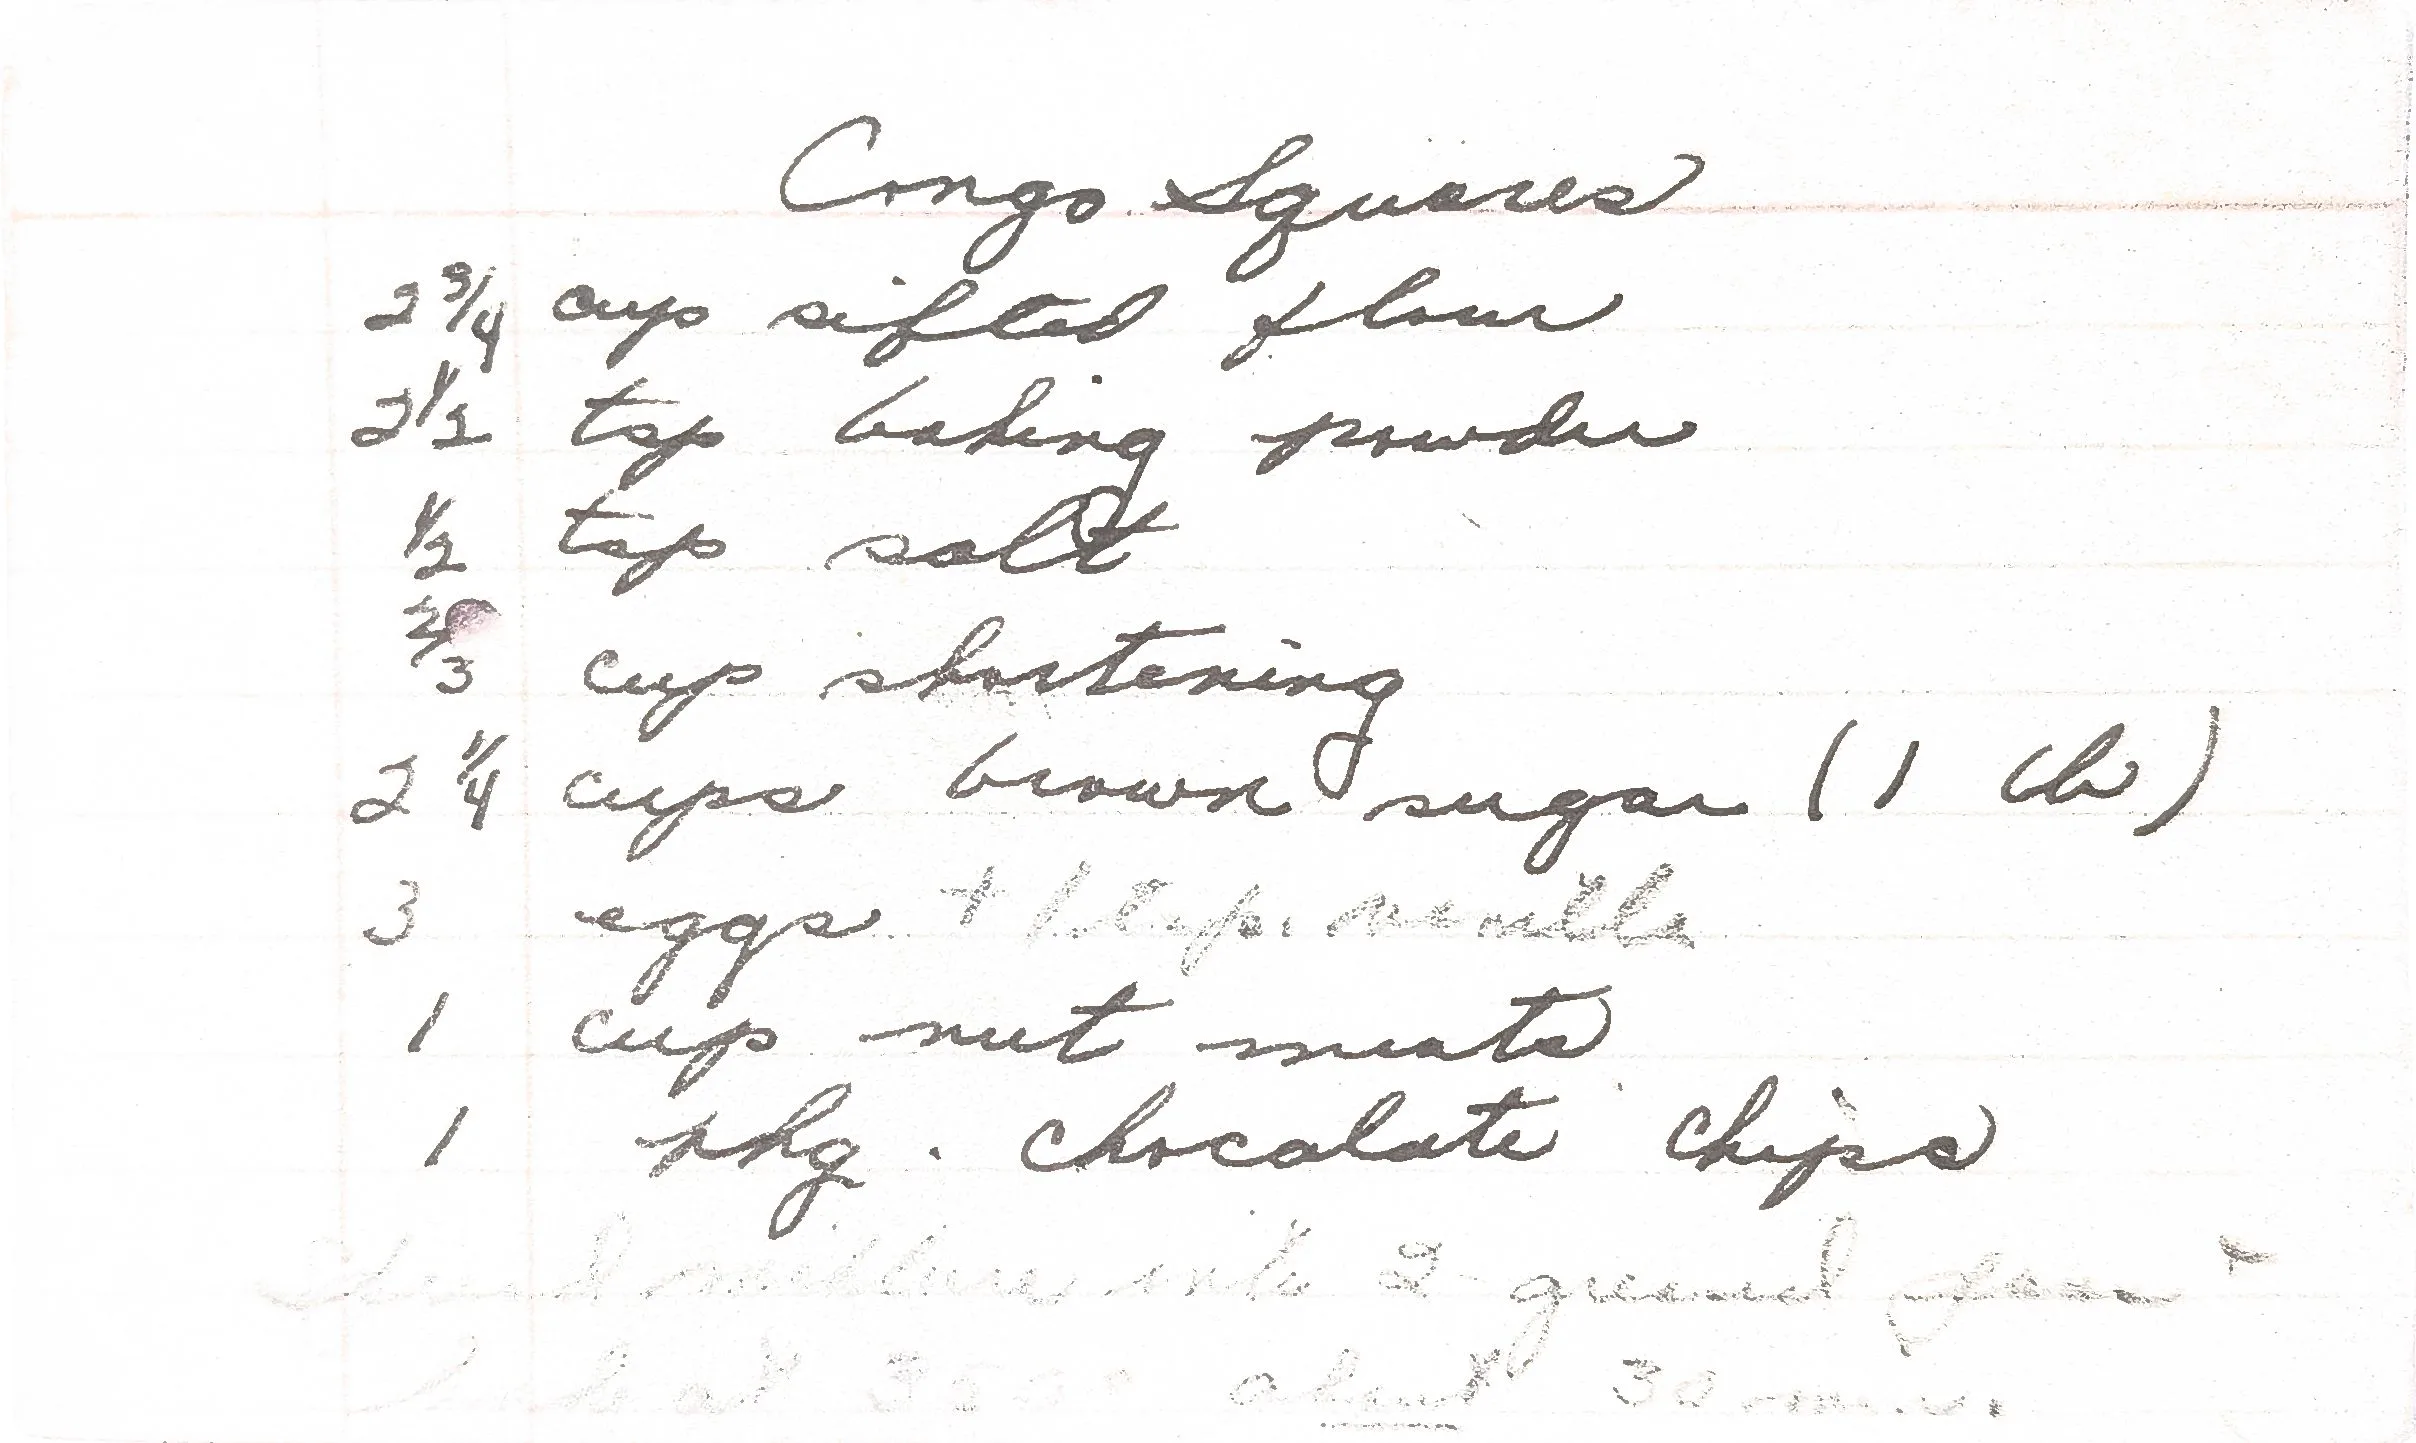 Congo Squares
2 3/4 cup sifted flour
2 1/2 tsp baking powder
1/2 tsp salt
2/3 cup shortening
2 1/4 cups brown sugar (1 lb)
3 eggs + 1 tsp. vanilla
1 cup nut meats
1 pkg. chocolate chips
Spread mixture into 2 greased pans +
bake at about 30 min.